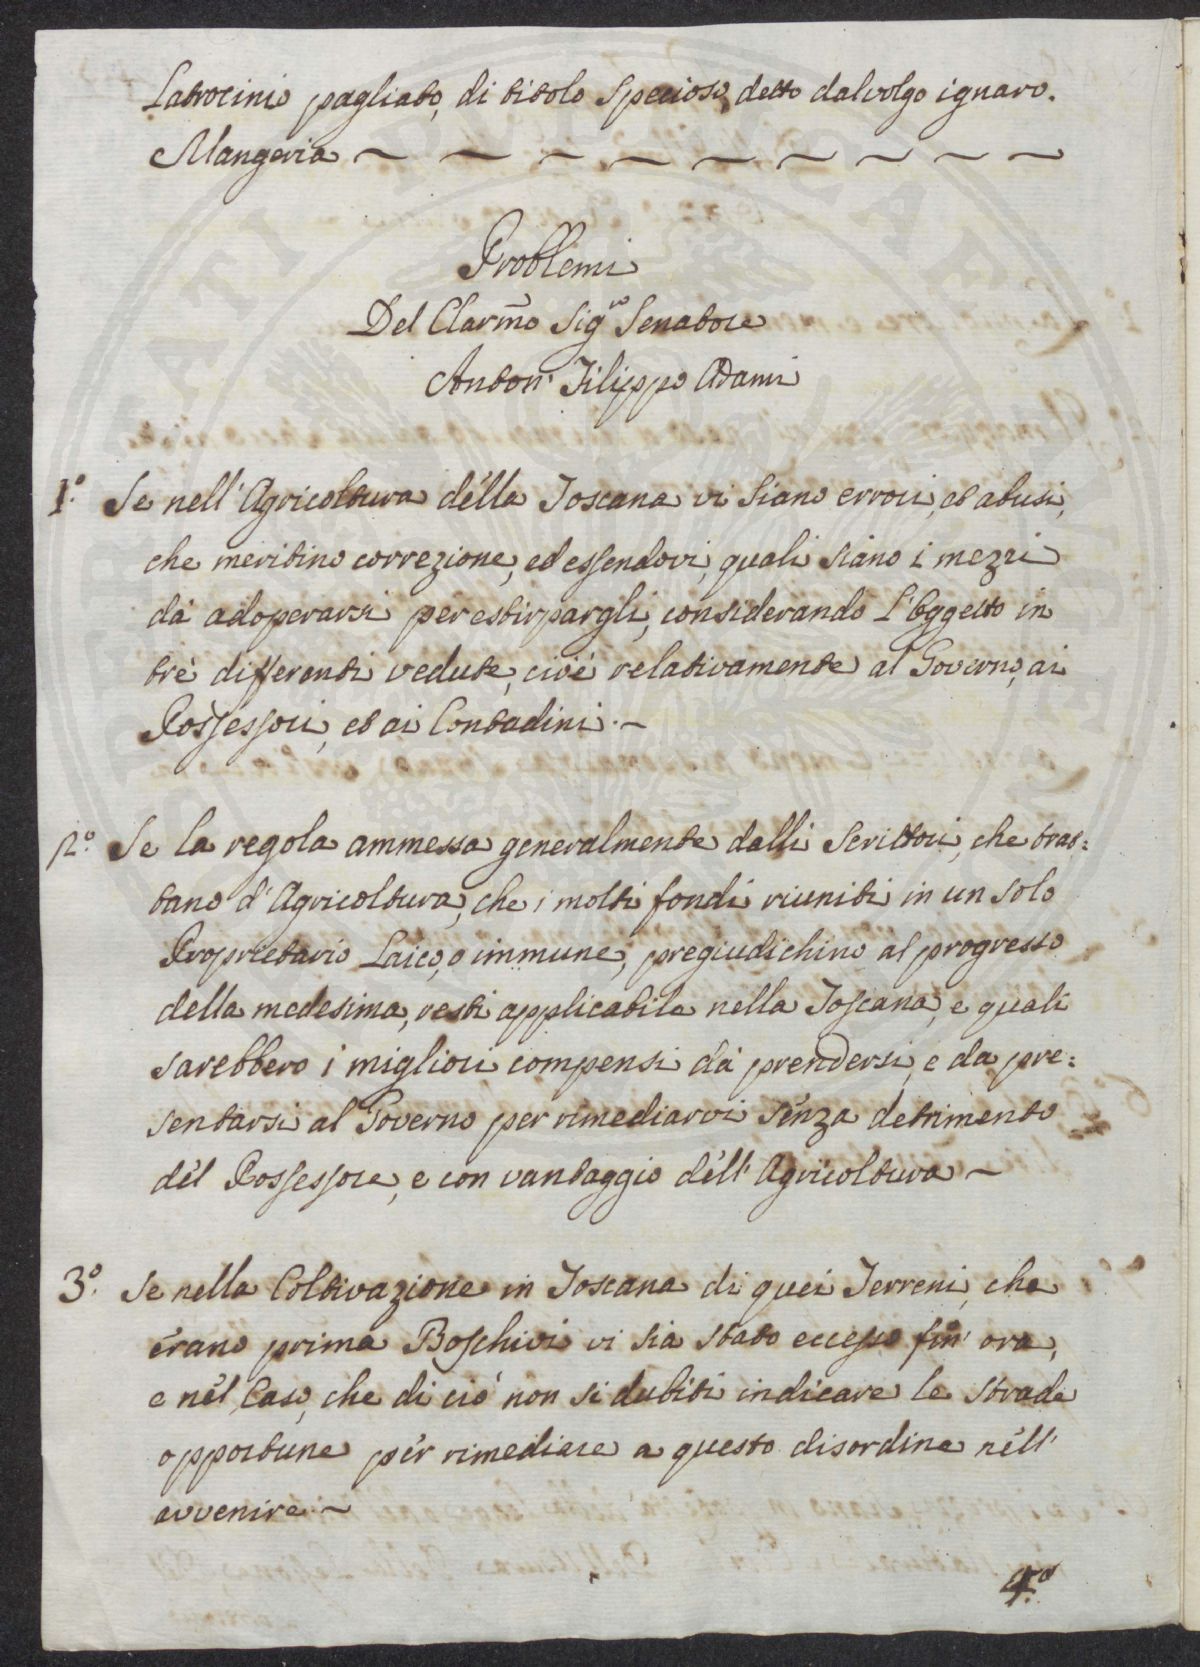 Latrocinio pagliato, di titolo Specioso, detto dal volgo ignaro.
Mangeria ~ ~ ~ ~ ~ ~ ~ ~ ~
Problemi
Del Clarm̃o Sigʳᵉ Senatore
Anton' Filippo Adami
1.° Se nell' Agricoltura délla Toscana vi Siano errori, et abusi,
che meritino correzione, ed essendovi, quali siano i mezzi
dà adoperarsi per estirpargli, considerando l'Oggetto in
trè differenti vedute, cioè relativamente al Governo, ai
Possessori, et ai Contadini. ~
2.° Se la regola ammessa generalmente dalli Scrittori, che trat:
tano d' Agricoltura, che i molti fondi riuniti in un solo
Proprietario Laico, o immune, pregiudichino al progresso
della medesima, resti applicabile nella Toscana, e quali
sarebbero i migliori compensi dà prendersi, e da pre:
sentarsi al Governo per rimediarvi sénza detrimento
dél Possessore, e con vantaggio déll' Agricoltura ~
3.° Se nella Coltivazione in Toscana di quei Terreni, che
érano prima Boschivi vi sia stato eccesso fin' ora,
e nél Caso, che di ciò non si dubiti indicare le strade
opportune pér rimediare a questo disordine néll'
avvenire ~
4.°